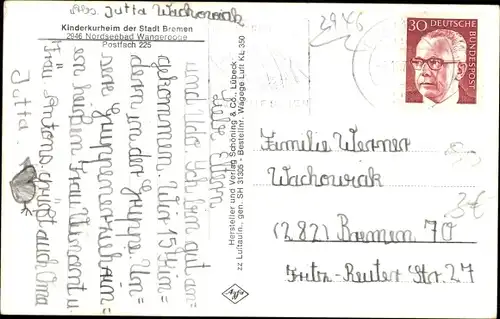 Abs. Jutta Wachowiak
Kinderkurheim der Stadt Bremen
2946 Nordseebad Wangerooge
Postfach 225
Liebe Eltern,
und Udo. Ich bin gut an=
gekommen. Wir 15 Kin=
dern in der Gruppe. Un=
sere Gruppenerzieherin=
en heißen Frau Vincent u.
Frau Antons. Grüßt auch Oma
Jutta.
Hersteller und Verlag Schöning & Co., Lübeck
gen. SH 31305 - Bestellnr. Wagege Luft KL 350
zz Luftaufn.,
2946
30
DEUTSCHE
BUNDESPOST
Familie Werner
Wachowiak
(282) Bremen 70
Fritz-Reuter Str. 27
3€